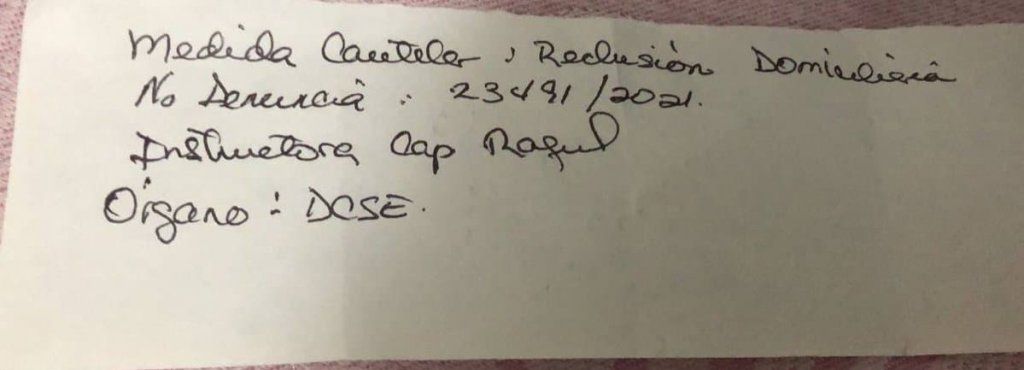 Medida Cautelar, Reclusión Domiciliaria
No Denuncia: 23491/2021.
Instructora Cap Raquel
Órgano: DCSE.